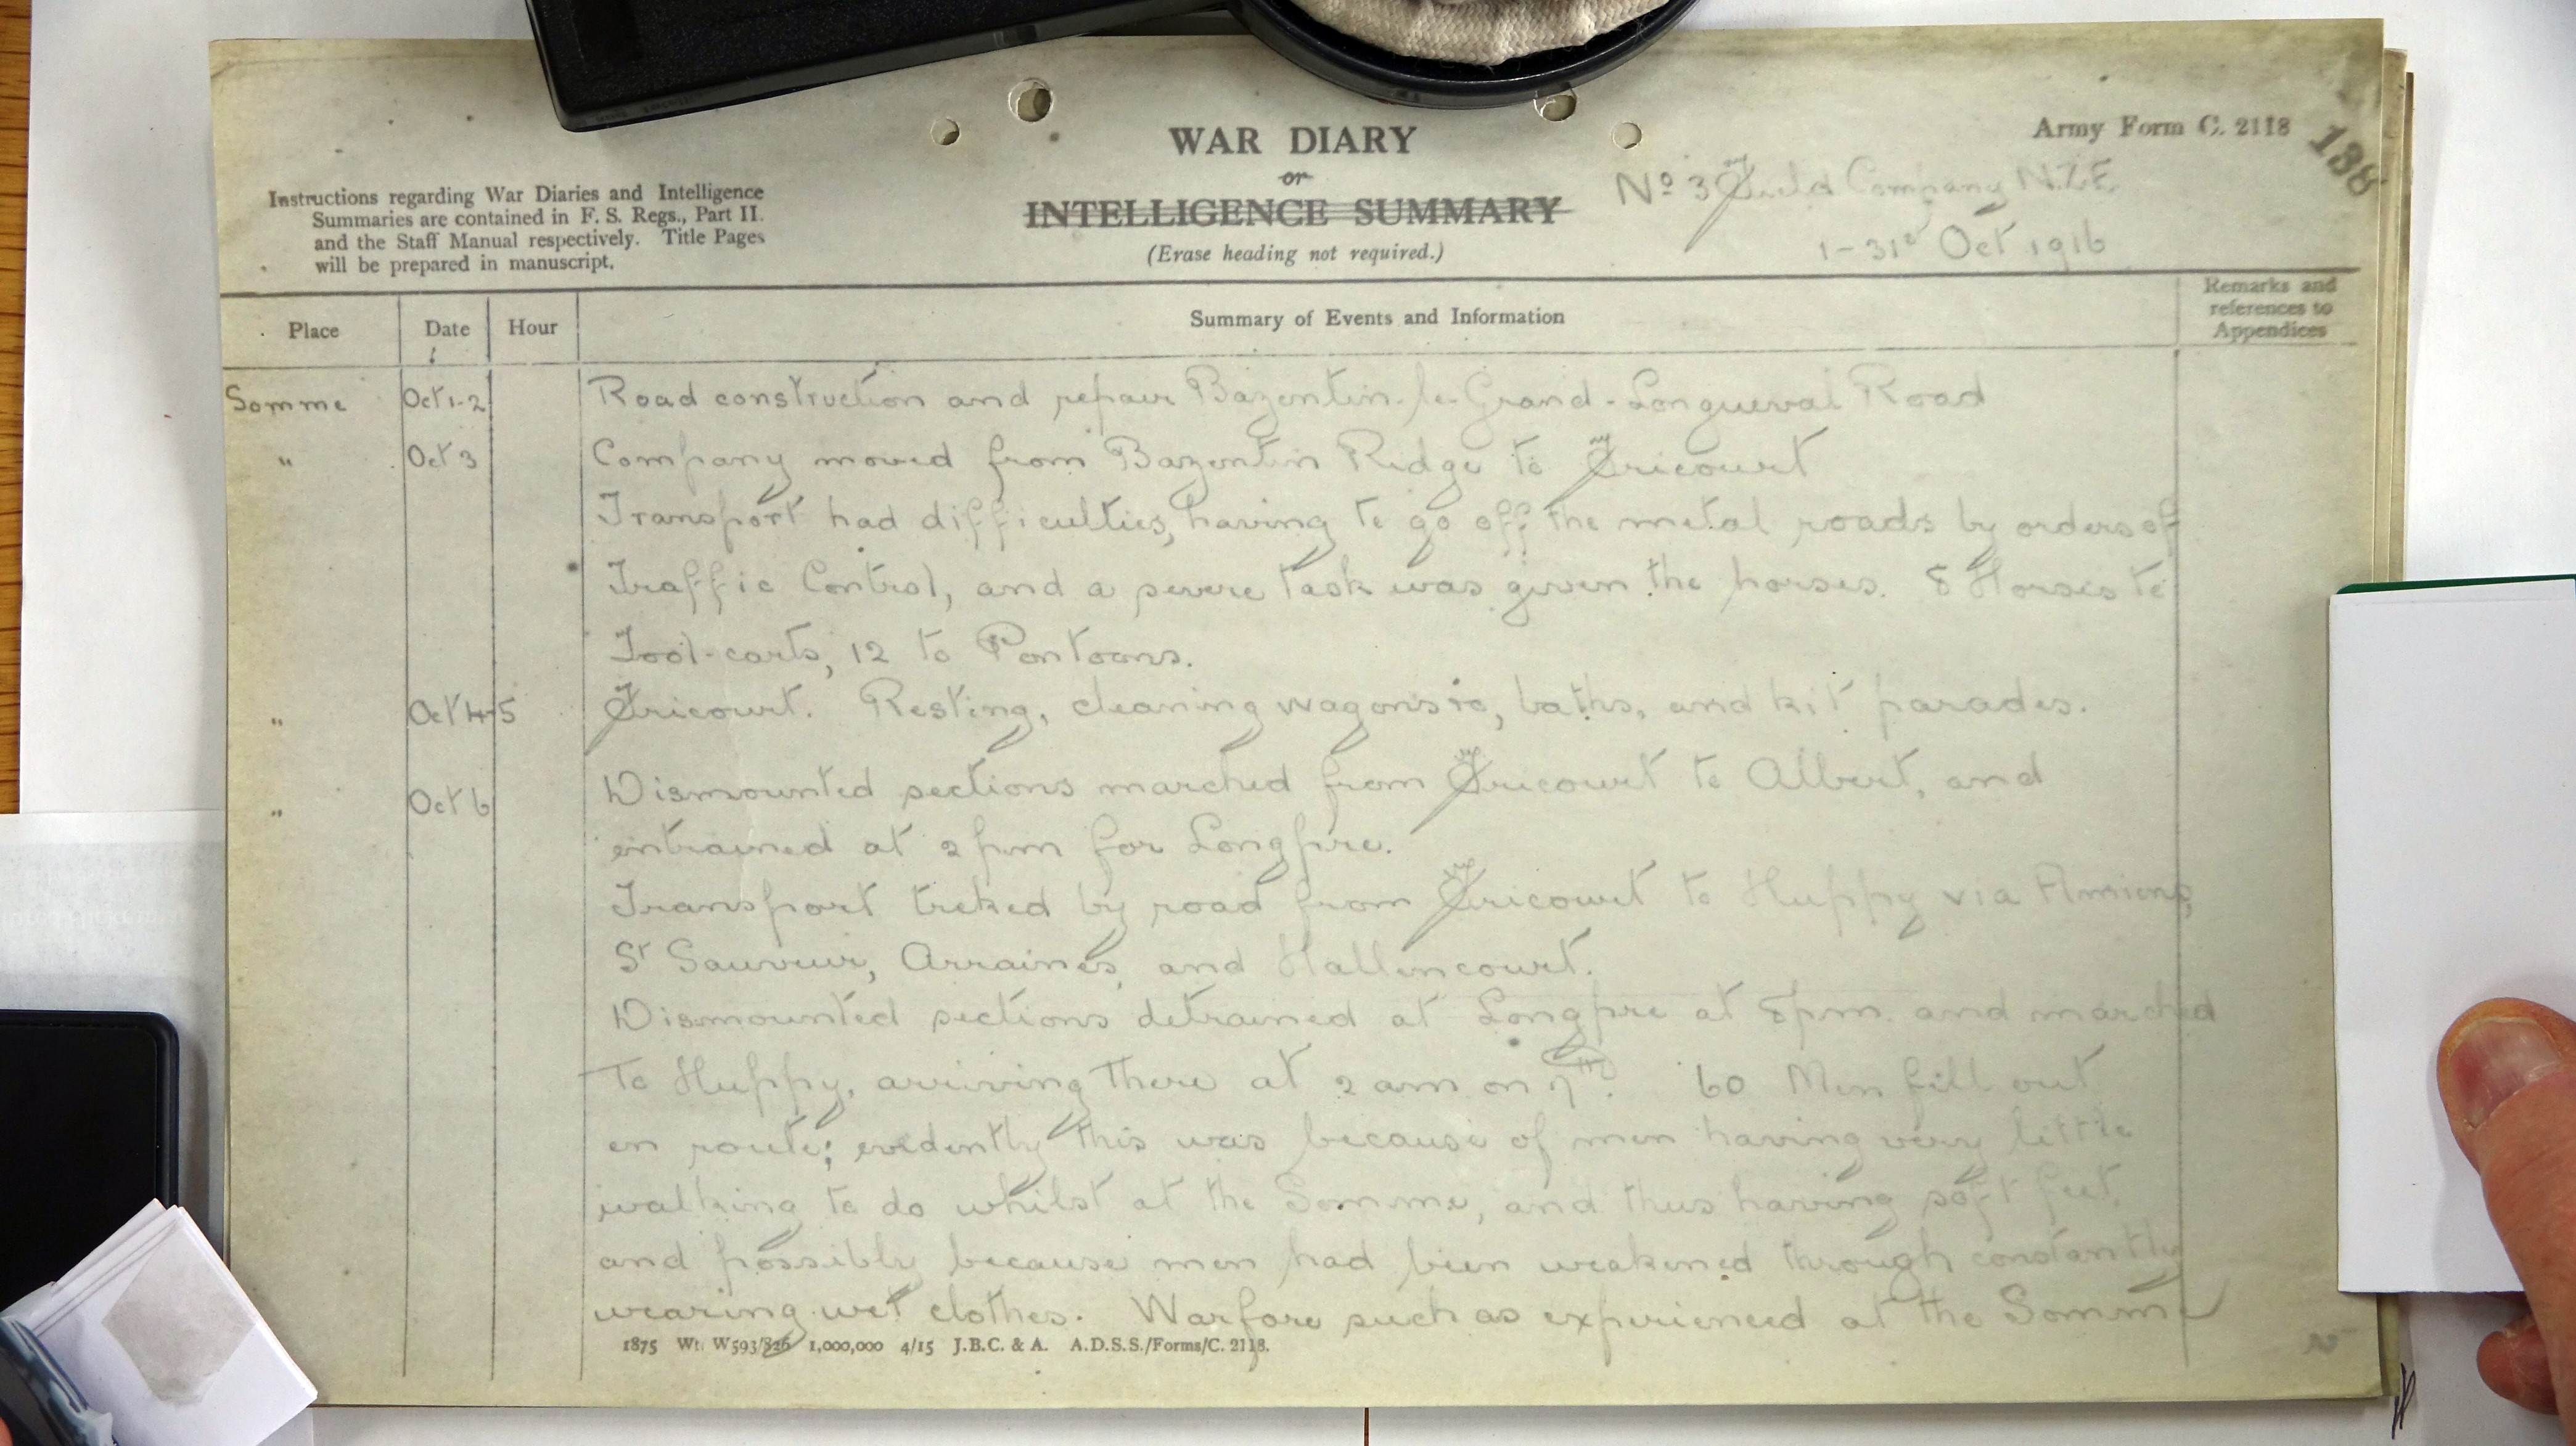 Army Form C. 2118
138
WAR DIARY
or
INTELLIGENCE SUMMARY
(Erase heading not required.)
No 3 Field Company N.Z.E.
1-31st Oct 1916
Instructions regarding War Diaries and Intelligence
Summaries are contained in F. S. Regs., Part II.
and the Staff Manual respectively. Title Pages
will be prepared in manuscript.
Place Date Hour Summary of Events and Information Remarks and references to Appendices
Somme Oct 1-2 Road construction and repair Bazentin-le-Grand-Longueval Road
" Oct 3 Company moved from Bazentin Ridge to Fricourt
Transport had difficulties, having to go off the metal roads by orders of
Traffic Control, and a severe task was given the horses. 8 Horses to
Tool-carts, 12 to Pontoons.
" Oct 4-5 Fricourt. Resting, cleaning wagons, baths, and kit parades.
" Oct 6 Dismounted sections marched from Fricourt to Albert, and
entrained at 2 pm for Longpre.
Transport treked by road from Fricourt to Huppy via Amiens,
St Sauveur, Arraines, and Hallencourt.
Dismounted sections detrained at Longpre at 8pm. and marched
to Huppy, arriving there at 2 am on 7th. 60 Men fell out
en route; evidently this was because of men having very little
walking to do whilst at the Somme, and thus having soft feet,
and possibly because men had been weakened through constantly
wearing wet clothes. Warfare such as experienced at the Somme
1875 Wt. W593/826 1,000,000 4/15 J.B.C. & A. A.D.S.S./Forms/C. 2118.